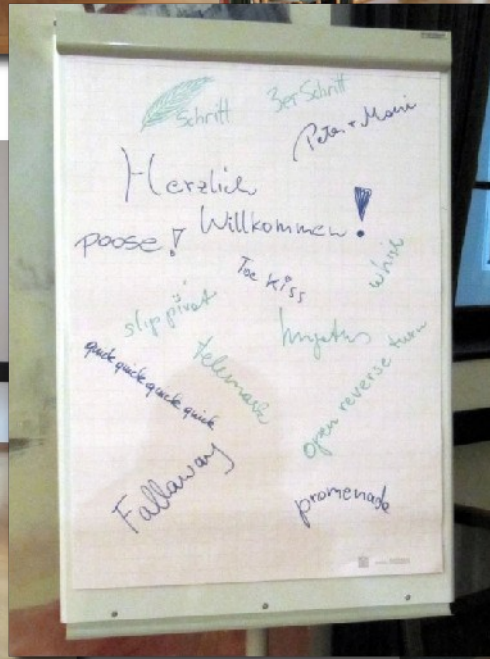 Schritt
3er Schritt
Peter + Mani
Herzlich
Willkommen!
poose!
Toe Kiss
whisk
slip pivot
Impetus
telemark
quick quick quick quick
open reverse turn
Fallaway
promenade